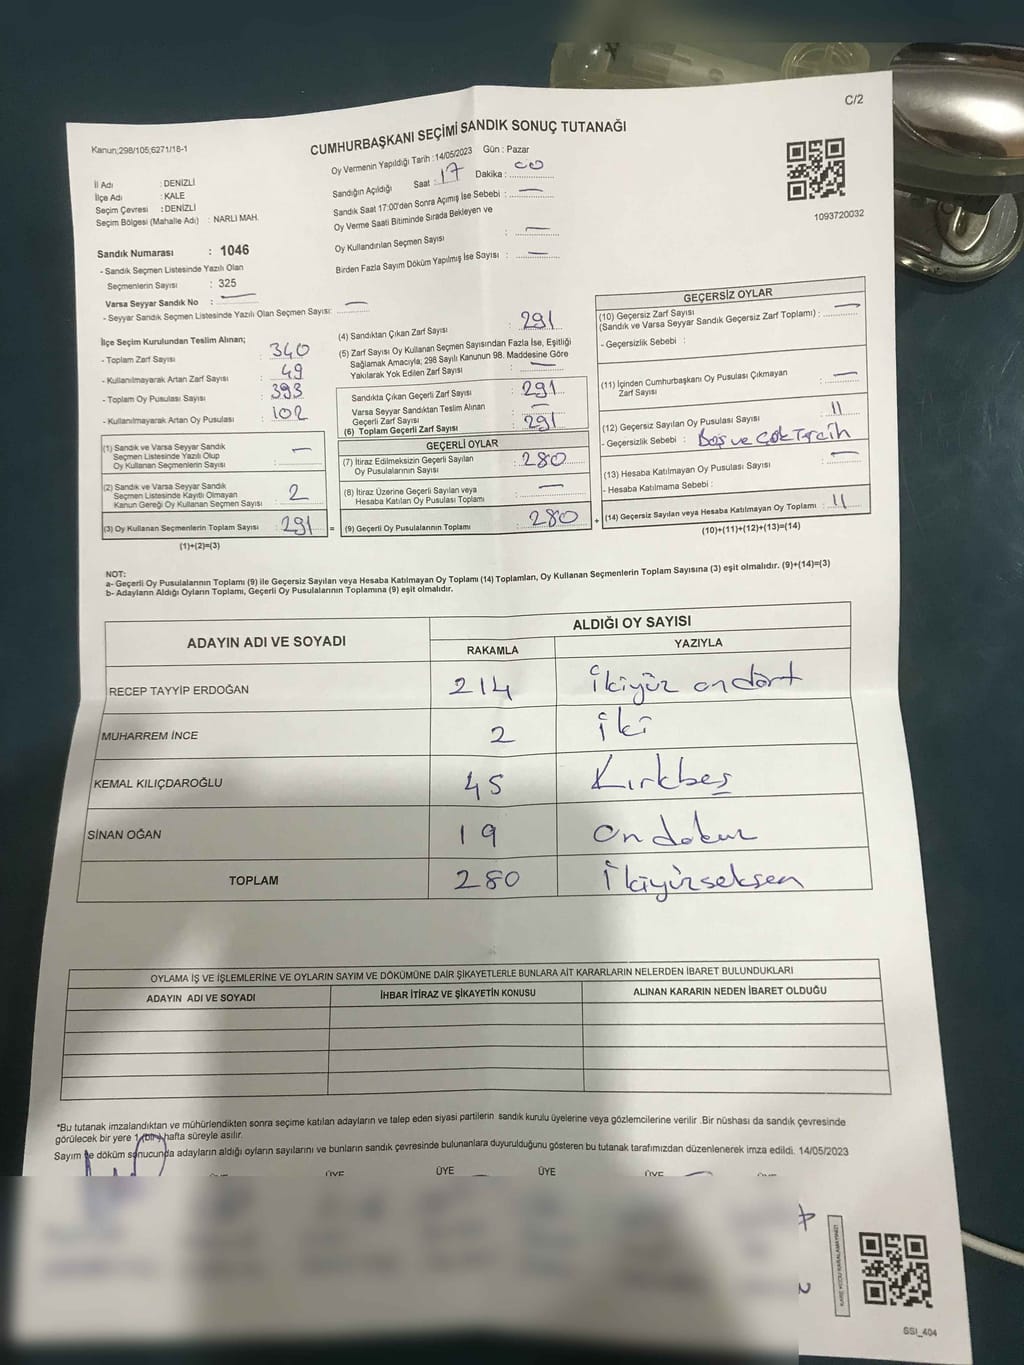 C/2
Kanun;298/105;6271/18-1
CUMHURBAŞKANI SEÇİMİ SANDIK SONUÇ TUTANAĞI
Oy Vermenin Yapıldığı Tarih :14/05/2023 Gün : Pazar
Sandığın Açıldığı Saat : 17 Dakika : 00
Sandık Saat 17:00'den Sonra Açımış İse Sebebi : —
Oy Verme Saati Bitiminde Sırada Bekleyen ve
Oy Kullandırılan Seçmen Sayısı : —
Birden Fazla Sayım Döküm Yapılmış İse Sayısı : —
1093720032
İl Adı : DENİZLİ
İlçe Adı : KALE
Seçim Çevresi : DENİZLİ
Seçim Bölgesi (Mahalle Adı) : NARLI MAH.
Sandık Numarası : 1046
- Sandık Seçmen Listesinde Yazılı Olan
Seçmenlerin Sayısı : 325
Varsa Seyyar Sandık No : —
- Seyyar Sandık Seçmen Listesinde Yazılı Olan Seçmen Sayısı: —
İlçe Seçim Kurulundan Teslim Alınan;
- Toplam Zarf Sayısı : 340
- Kullanılmayarak Artan Zarf Sayısı : 49
- Toplam Oy Pusulası Sayısı : 393
- Kullanılmayarak Artan Oy Pusulası : 102
(1) Sandık ve Varsa Seyyar Sandık
Seçmen Listesinde Yazılı Olup
Oy Kullanan Seçmenlerin Sayısı : —
(2) Sandık ve Varsa Seyyar Sandık
Seçmen Listesinde Kayıtlı Olmayan
Kanun Gereği Oy Kullanan Seçmen Sayısı : 2
(3) Oy Kullanan Seçmenlerin Toplam Sayısı : 291 =
(1)+(2)=(3)
(4) Sandıktan Çıkan Zarf Sayısı : 291
(5) Zarf Sayısı Oy Kullanan Seçmen Sayısından Fazla İse, Eşitliği
Sağlamak Amacıyla; 298 Sayılı Kanunun 98. Maddesine Göre
Yakılarak Yok Edilen Zarf Sayısı : —
Sandıkta Çıkan Geçerli Zarf Sayısı : 291
Varsa Seyyar Sandıktan Teslim Alınan
Geçerli Zarf Sayısı : —
(6) Toplam Geçerli Zarf Sayısı : 291
GEÇERLİ OYLAR
(7) İtiraz Edilmeksizin Geçerli Sayılan
Oy Pusulalarının Sayısı : 280
(8) İtiraz Üzerine Geçerli Sayılan veya
Hesaba Katılan Oy Pusulası Toplamı : —
(9) Geçerli Oy Pusulalarının Toplamı : 280 +
GEÇERSİZ OYLAR
(10) Geçersiz Zarf Sayısı
(Sandık ve Varsa Seyyar Sandık Geçersiz Zarf Toplamı) : —
- Geçersizlik Sebebi :
(11) İçinden Cumhurbaşkanı Oy Pusulası Çıkmayan
Zarf Sayısı : —
(12) Geçersiz Sayılan Oy Pusulası Sayısı : 11
- Geçersizlik Sebebi : Boş ve Çok Tercih
(13) Hesaba Katılmayan Oy Pusulası Sayısı : —
- Hesaba Katılmama Sebebi :
(14) Geçersiz Sayılan veya Hesaba Katılmayan Oy Toplamı : 11
(10)+(11)+(12)+(13)=(14)
NOT:
a- Geçerli Oy Pusulalarının Toplamı (9) ile Geçersiz Sayılan veya Hesaba Katılmayan Oy Toplamı (14) Toplamları, Oy Kullanan Seçmenlerin Toplam Sayısına (3) eşit olmalıdır. (9)+(14)=(3)
b- Adayların Aldığı Oyların Toplamı, Geçerli Oy Pusulalarının Toplamına (9) eşit olmalıdır.
ADAYIN ADI VE SOYADI ALDIĞI OY SAYISI
RAKAMLA YAZIYLA
RECEP TAYYİP ERDOĞAN 214 İkiyüz ondört
MUHARREM İNCE 2 İki
KEMAL KILIÇDAROĞLU 45 Kırkbeş
SİNAN OĞAN 19 Ondokuz
TOPLAM 280 İkiyüzseksen
OYLAMA İŞ VE İŞLEMLERİNE VE OYLARIN SAYIM VE DÖKÜMÜNE DAİR ŞİKAYETLERLE BUNLARA AİT KARARLARIN NELERDEN İBARET BULUNDUKLARI
ADAYIN ADI VE SOYADI İHBAR İTİRAZ VE ŞİKAYETİN KONUSU ALINAN KARARIN NEDEN İBARET OLDUĞU
*Bu tutanak imzalandıktan ve mühürlendikten sonra seçime katılan adayların ve talep eden siyasi partilerin sandık kurulu üyelerine veya gözlemcilerine verilir .Bir nüshası da sandık çevresinde
görülecek bir yere 1 (bir) hafta süreyle asılır.
Sayım ve döküm sonucunda adayların aldığı oyların sayılarını ve bunların sandık çevresinde bulunanlara duyurulduğunu gösteren bu tutanak tarafımızdan düzenlenerek imza edildi. 14/05/2023
ÜYE ÜYE ÜYE ÜYE
KARE KODU KARALAMAYINIZ!
SSI_404